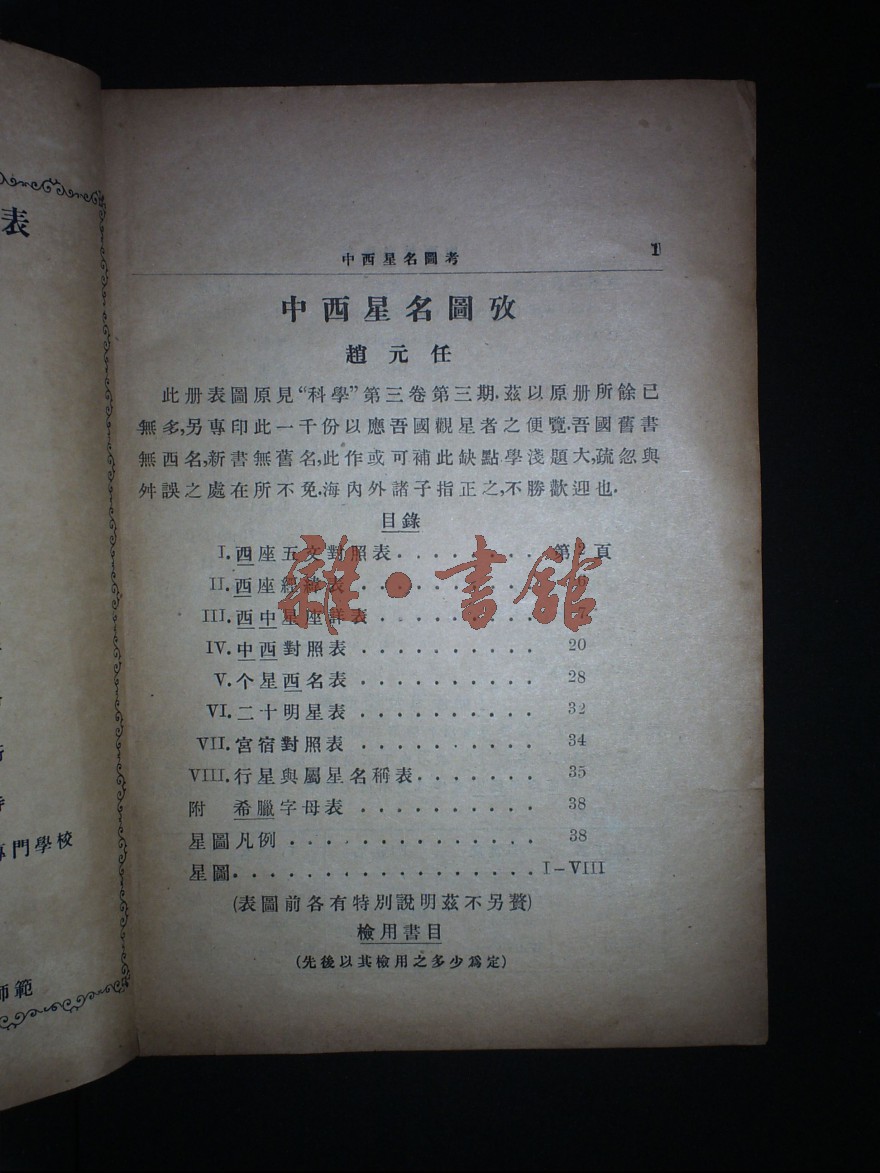 表
專門學校
師範
中西星名圖考
1
中西星名圖攷
趙元任
此册表圖原見“科學”第三卷第三期.茲以原册所餘已
無多,另專印此一千份以應吾國觀星者之便覽.吾國舊書
無西名,新書無舊名,此作或可補此缺點.學淺題大,疏忽與
舛誤之處在所不免.海內外諸子指正之,不勝歡迎也.
目錄
I.西座五文對照表........第2頁
II.西座經緯表..........
III.西中星座詳表..........7
IV.中西對照表..........20
V.个星西名表..........28
VI.二十明星表..........32
VII.宮宿對照表..........34
VIII.行星與屬星名稱表.......35
附 希臘字母表..........38
星圖凡例..............38
星圖.................I-VIII
(表圖前各有特別說明茲不另贅)
檢用書目
(先後以其檢用之多少爲定)
雜·書館